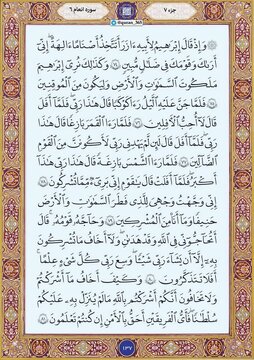 جزء ۷
@quran_365
سوره انعام ۶
وَإِذْ قَالَ إِبْرَٰهِيمُ لِأَبِيهِ ءَازَرَ أَتَتَّخِذُ أَصْنَامًا ءَالِهَةً إِنِّىٓ
أَرَىٰكَ وَقَوْمَكَ فِى ضَلَٰلٍ مُّبِينٍ ۝٧٤ وَكَذَٰلِكَ نُرِىٓ إِبْرَٰهِيمَ
مَلَكُوتَ ٱلسَّمَٰوَٰتِ وَٱلْأَرْضِ وَلِيَكُونَ مِنَ ٱلْمُوقِنِينَ
۝٧٥ فَلَمَّا جَنَّ عَلَيْهِ ٱلَّيْلُ رَءَا كَوْكَبًا قَالَ هَٰذَا رَبِّى فَلَمَّآ أَفَلَ
قَالَ لَآ أُحِبُّ ٱلْءَافِلِينَ ۝٧٦ فَلَمَّا رَءَا ٱلْقَمَرَ بَازِغًا قَالَ هَٰذَا
رَبِّى فَلَمَّآ أَفَلَ قَالَ لَئِن لَّمْ يَهْدِنِى رَبِّى لَأَكُونَنَّ مِنَ ٱلْقَوْمِ
ٱلضَّآلِّينَ ۝٧٧ فَلَمَّا رَءَا ٱلشَّمْسَ بَازِغَةً قَالَ هَٰذَا رَبِّى هَٰذَآ
أَكْبَرُ فَلَمَّآ أَفَلَتْ قَالَ يَٰقَوْمِ إِنِّى بَرِىٓءٌ مِّمَّا تُشْرِكُونَ ۝٧٨
إِنِّى وَجَّهْتُ وَجْهِىَ لِلَّذِى فَطَرَ ٱلسَّمَٰوَٰتِ وَٱلْأَرْضَ
حَنِيفًا وَمَآ أَنَا۠ مِنَ ٱلْمُشْرِكِينَ ۝٧٩ وَحَآجَّهُۥ قَوْمُهُۥ قَالَ
أَتُحَٰٓجُّوٓنِّى فِى ٱللَّهِ وَقَدْ هَدَىٰنِ وَلَآ أَخَافُ مَا تُشْرِكُونَ
بِهِۦٓ إِلَّآ أَن يَشَآءَ رَبِّى شَيْـًٔا وَسِعَ رَبِّى كُلَّ شَىْءٍ عِلْمًا
أَفَلَا تَتَذَكَّرُونَ ۝٨٠ وَكَيْفَ أَخَافُ مَآ أَشْرَكْتُمْ
وَلَا تَخَافُونَ أَنَّكُمْ أَشْرَكْتُم بِٱللَّهِ مَا لَمْ يُنَزِّلْ بِهِۦ عَلَيْكُمْ
سُلْطَٰنًا فَأَىُّ ٱلْفَرِيقَيْنِ أَحَقُّ بِٱلْأَمْنِ إِن كُنتُمْ تَعْلَمُونَ ۝٨١
۱۳۷